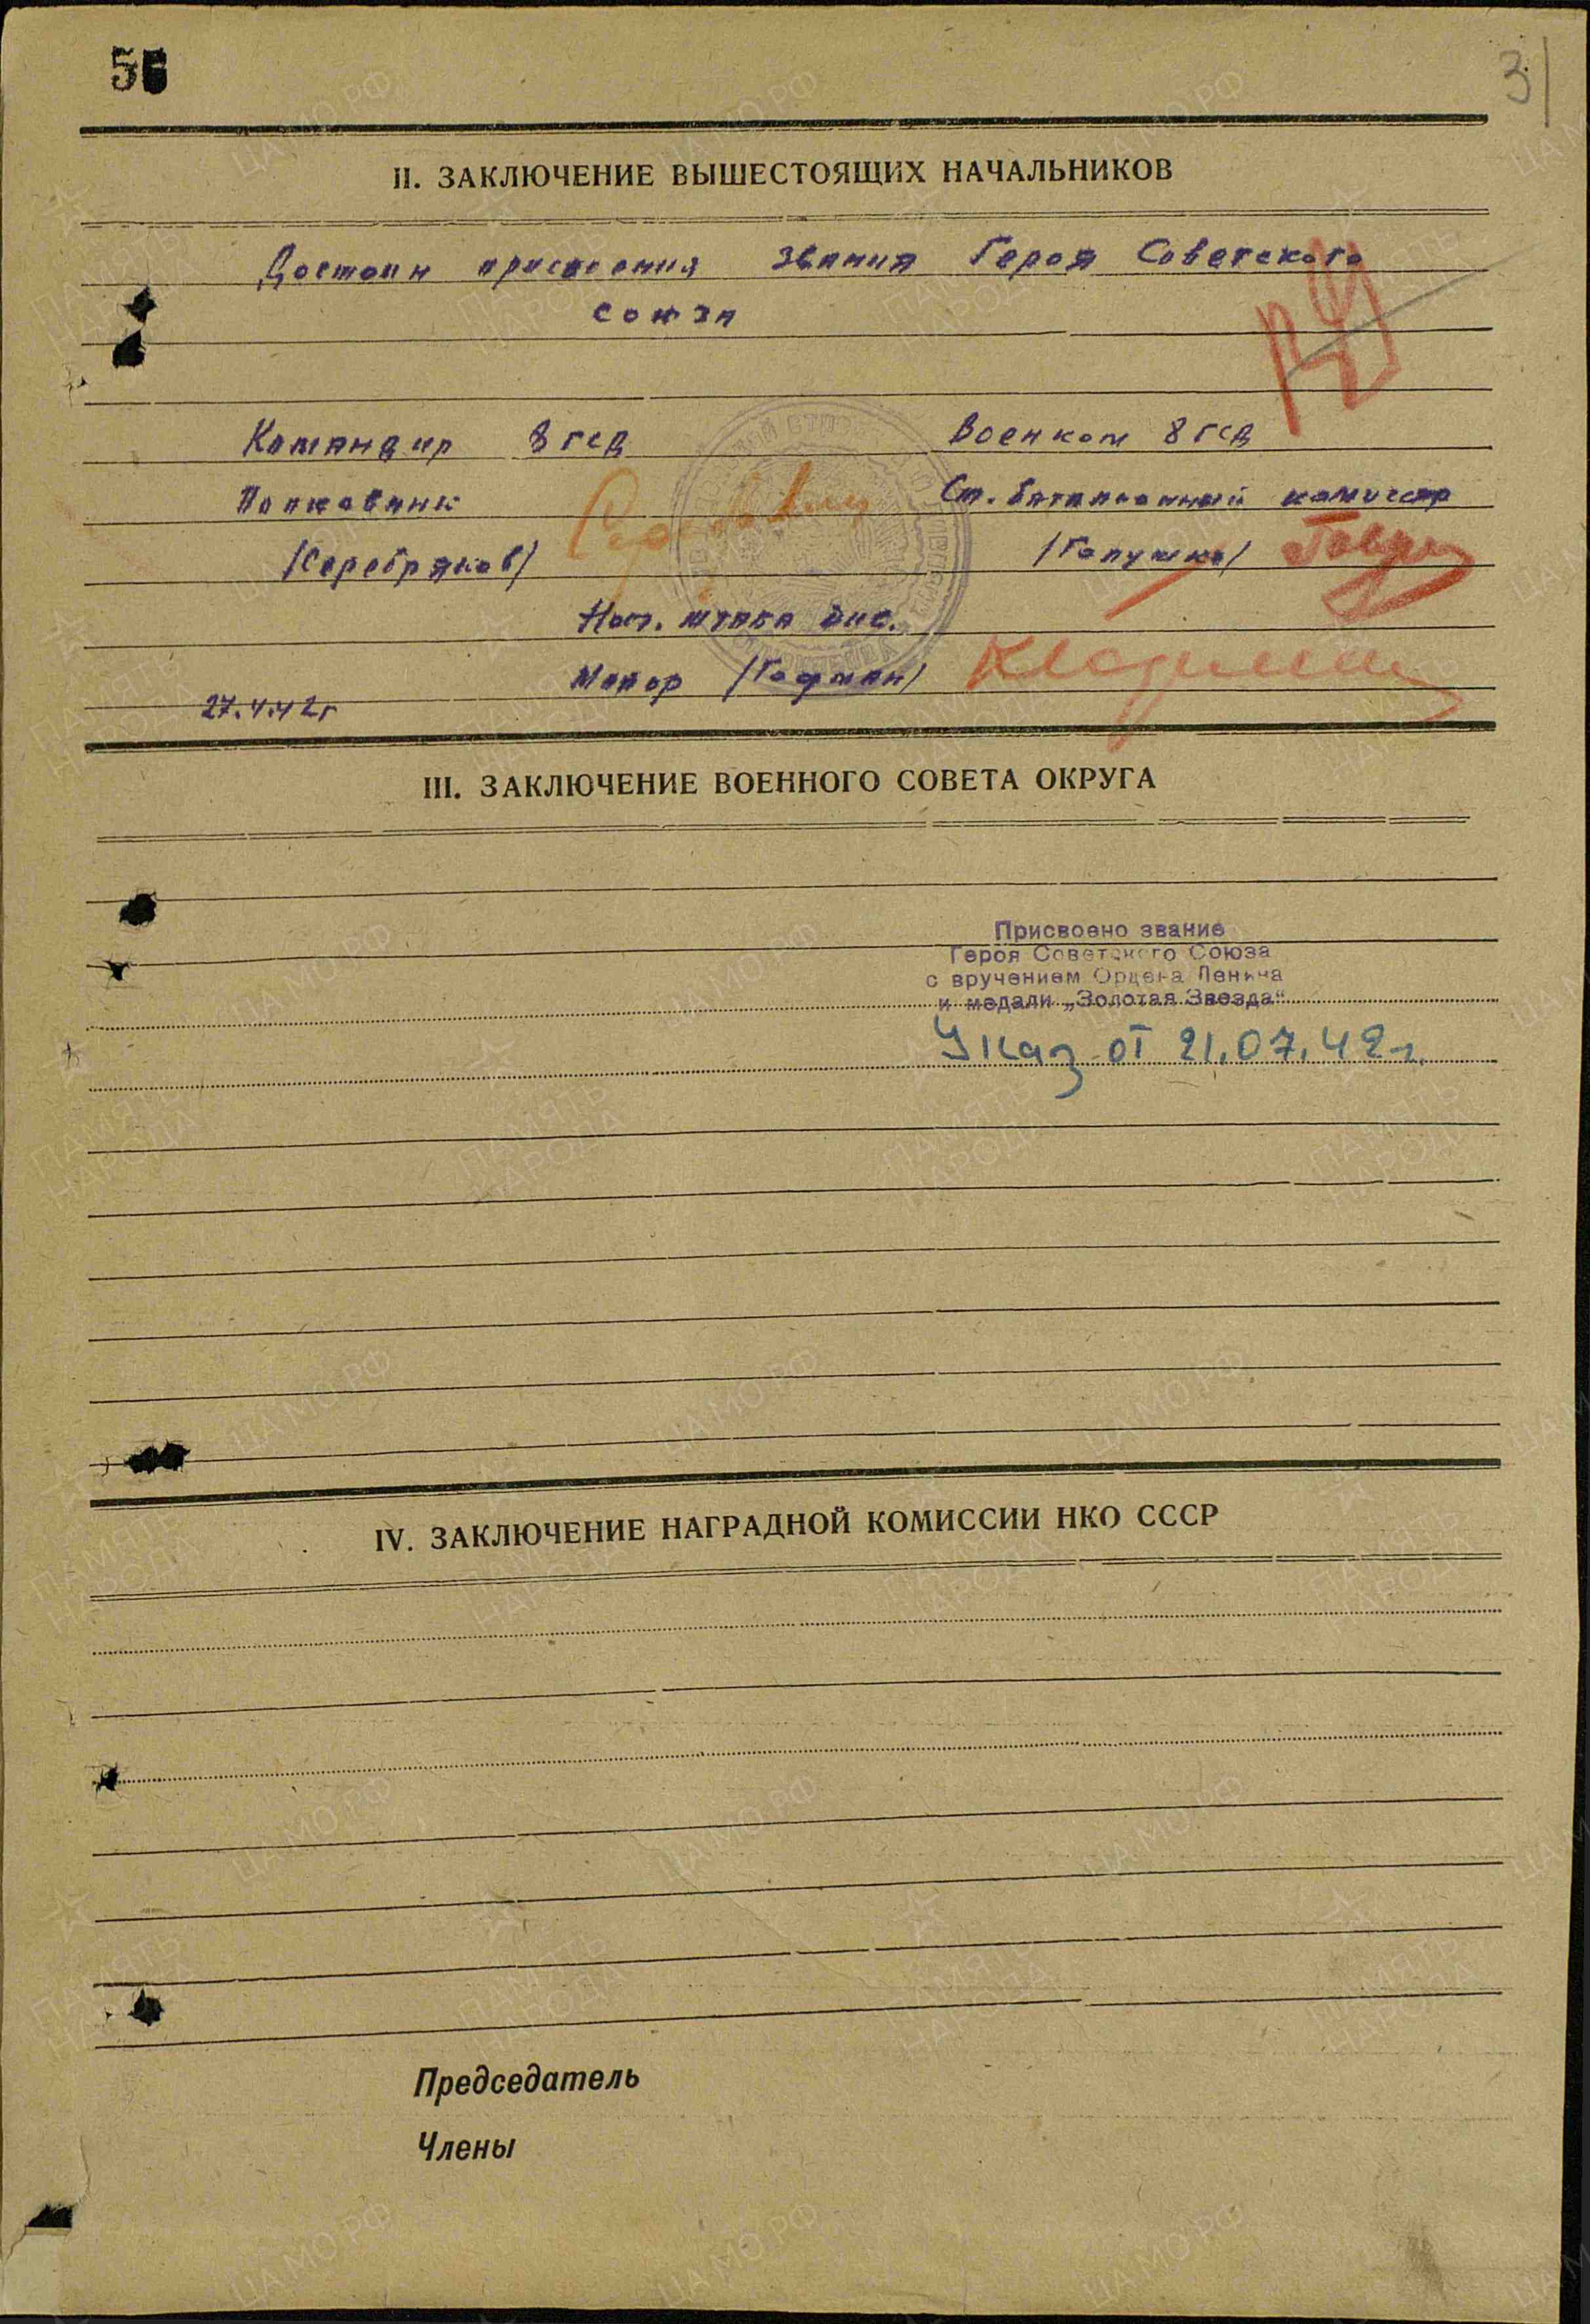 56
31
II. ЗАКЛЮЧЕНИЕ ВЫШЕСТОЯЩИХ НАЧАЛЬНИКОВ
Достоин присвоения звания Героя Советского
Союза
Командир 8 гсд Военком 8 гсд
Полковник Ст. батальонный комиссар
/Серебряков/ /Галушко/
Нач. штаба див.
Майор /Гофман/
27.4.42 г
III. ЗАКЛЮЧЕНИЕ ВОЕННОГО СОВЕТА ОКРУГА
Присвоено звание
Героя Советского Союза
с вручением Ордена Ленина
и медали „Золотая Звезда“
Указ от 21.07.42 г.
IV. ЗАКЛЮЧЕНИЕ НАГРАДНОЙ КОМИССИИ НКО СССР
Председатель
Члены
ЦАМО РФ
ПАМЯТЬ
НАРОДА